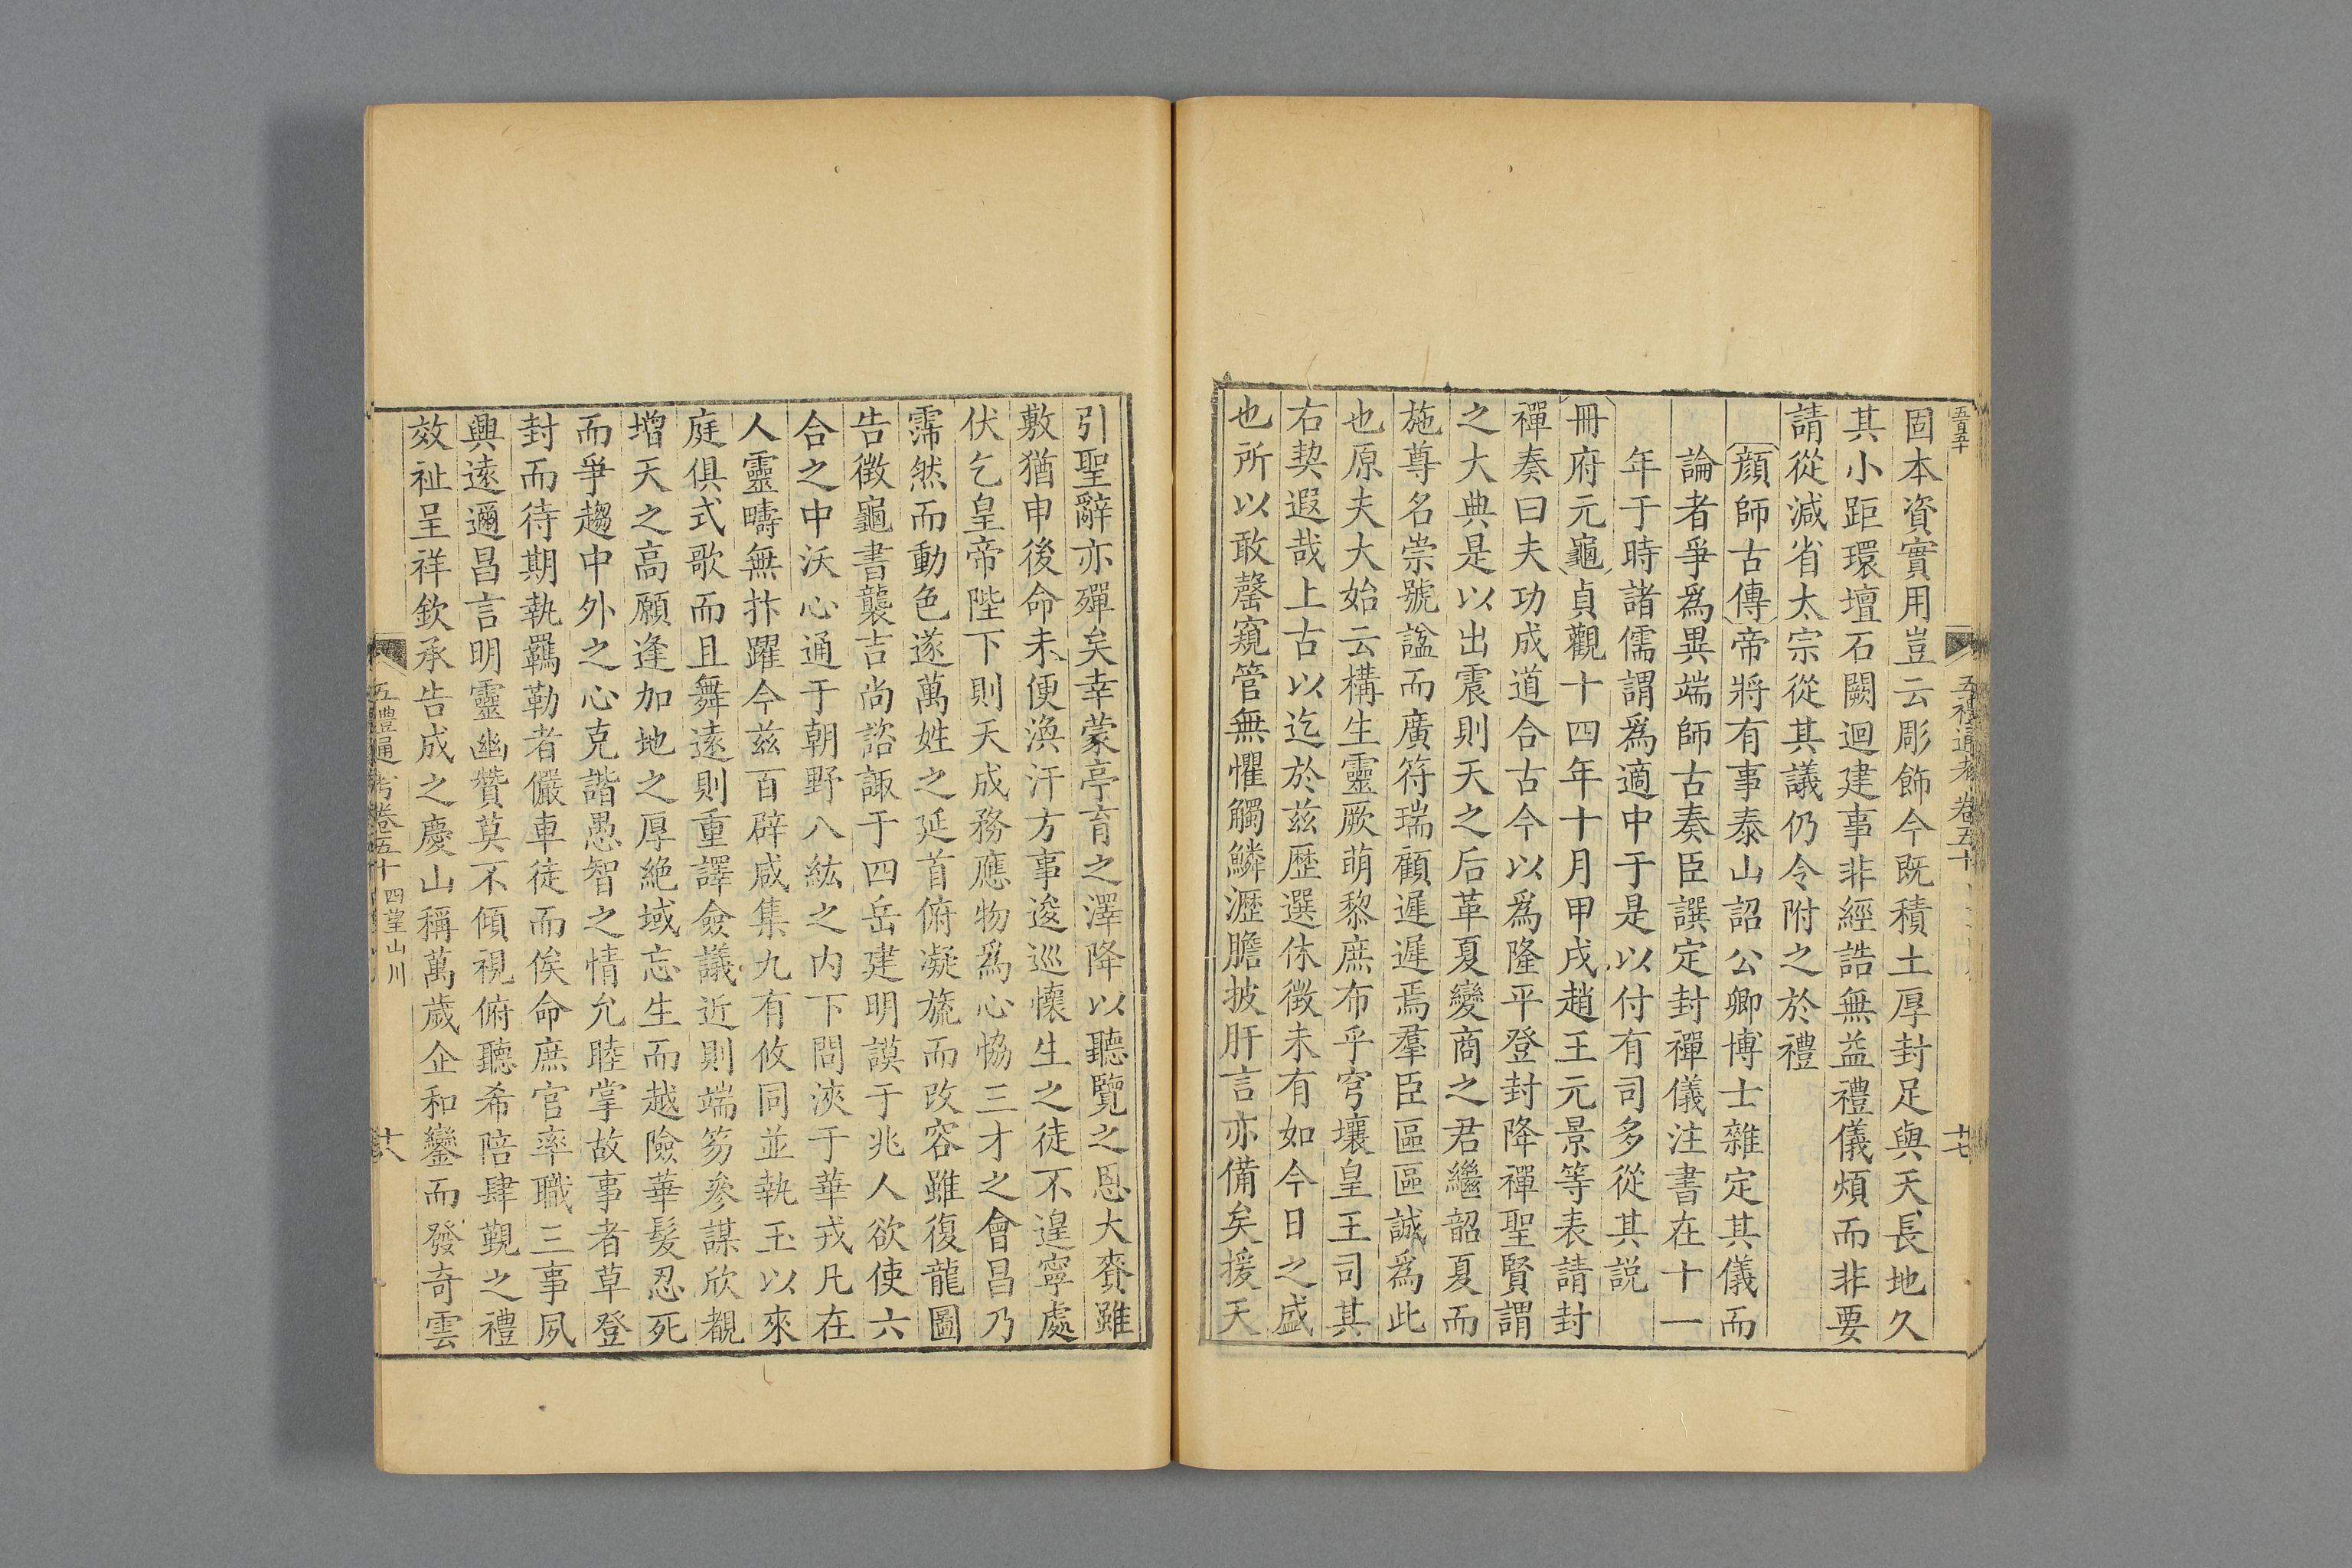 五百五十
五禮通考 卷五十
十七
固本資實用豈云彫飾今既積土厚封足與天長地久
其小距環壇石闕迴建事非經誥無益禮儀煩而非要
請從減省太宗從其議仍令附之於禮
顔師古傳帝將有事泰山詔公卿博士雜定其儀而
論者爭爲異端師古奏臣譔定封禪儀注書在十一
年于時諸儒謂爲適中于是以付有司多從其説
冊府元龜貞觀十四年十月甲戌趙王元景等表請封
禪奏曰夫功成道合古今以爲隆平登封降禪聖賢謂
之大典是以出震則天之后革夏變商之君繼韶夏而
施尊名崇號謚而廣符瑞顧遲遲焉羣臣區區誠爲此
也原夫大始云構生靈厥萌黎庶布乎穹壤皇王司其
右契遐哉上古以迄於兹歷選休徴未有如今日之盛
也所以敢罄窺管無懼觸鱗瀝膽披肝言亦備矣援天
引聖辭亦殫矣幸蒙亭育之澤降以聽覽之恩大賚雖
敷猶申後命未便渙汗方事逡巡懷生之徒不遑寧處
伏乞皇帝陛下則天成務應物爲心恊三才之會昌乃
霈然而動色遂萬姓之延首俯凝旒而改容雖復龍圖
告徴龜書襲吉尚諮諏于四岳建明謨于兆人欲使六
合之中沃心通于朝野八紘之内下問浹于華戎凡在
人靈疇無抃躍今兹百辟咸集九有攸同並執玉以來
庭俱式歌而且舞遠則重譯僉議近則端笏參謀欣覩
增天之高願逢加地之厚絶域忘生而越險華髮忍死
而爭趨中外之心克諧愚智之情允睦掌故事者草登
封而待期執羈勒者儼車徒而俟命庶官率職三事夙
興遠邇昌言明靈幽贊莫不傾視俯聽希陪肆覲之禮
效祉呈祥欽承告成之慶山稱萬歲企和鑾而發奇雲
五禮通考卷五十 四望山川
十八